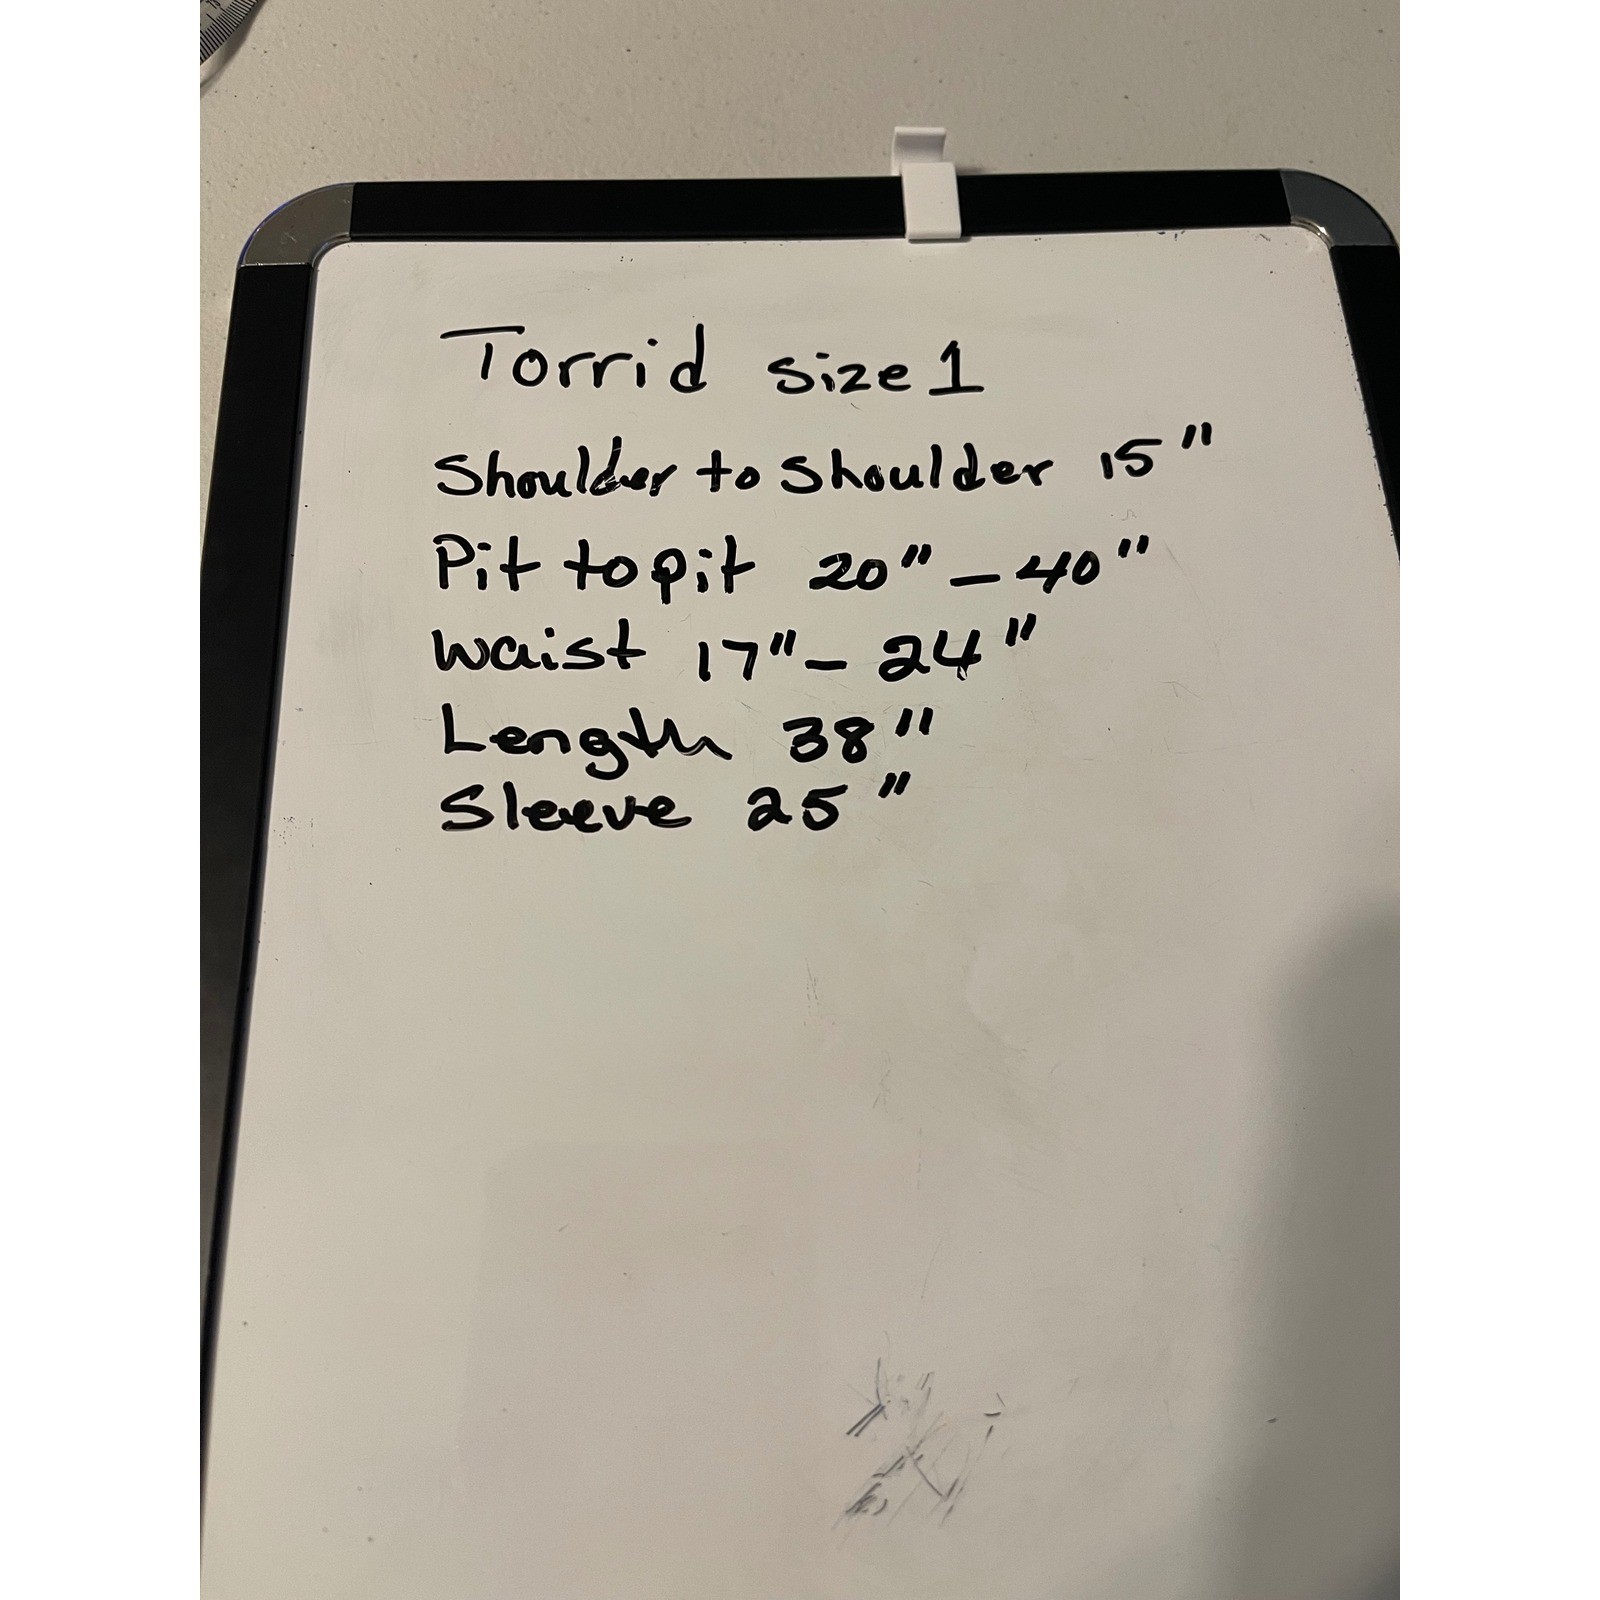 Torrid size 1
Shoulder to Shoulder 15"
Pit to pit 20" - 40"
Waist 17" - 24"
Length 38"
Sleeve 25"